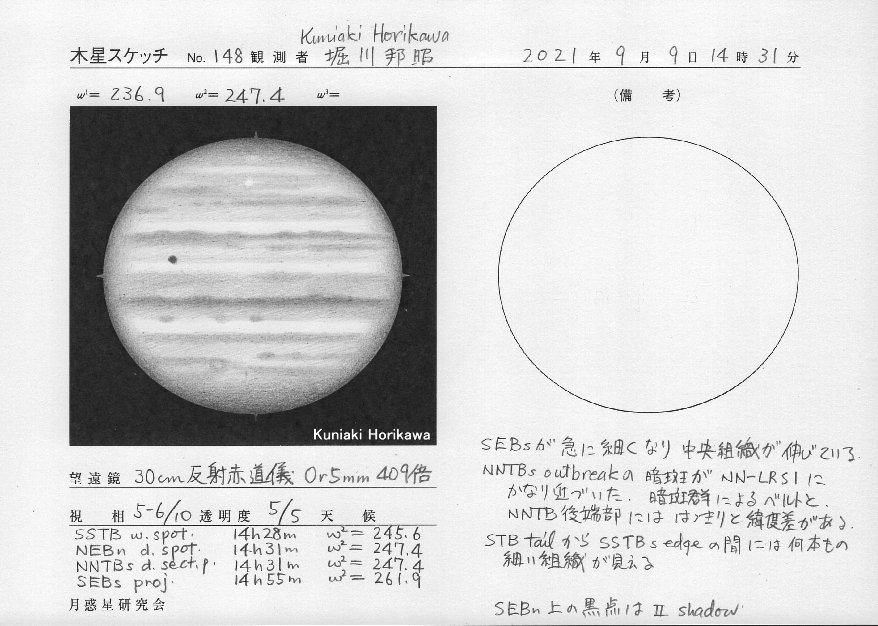 Kuniaki Horikawa
木星スケッチ No. 148 観測者 堀川邦昭 2021年9月9日14時31分
ω¹= 236.9 ω²= 247.4 ω³=
(備 考)
Kuniaki Horikawa
望遠鏡 30cm反射赤道儀 Or5mm 409倍
視 相 5-6/10 透明度 5/5 天 候
SSTB w. spot. 14h28m ω²= 245.6
NEBn d. spot. 14h31m ω²= 247.4
NNTBs d. sect. p. 14h31m ω²= 247.4
SEBs proj. 14h55m ω²= 261.9
月惑星研究会
SEBsが急に細くなり中央組織が伸びている.
NNTBs outbreakの暗斑がNN-LRS1に
かなり近づいた. 暗斑群によるベルトと、
NNTB後端部にははっきりと緯度差がある.
STB tailからSSTBs edgeの間には何本もの
細い組織が見える
SEBn上の黒点はII shadow.